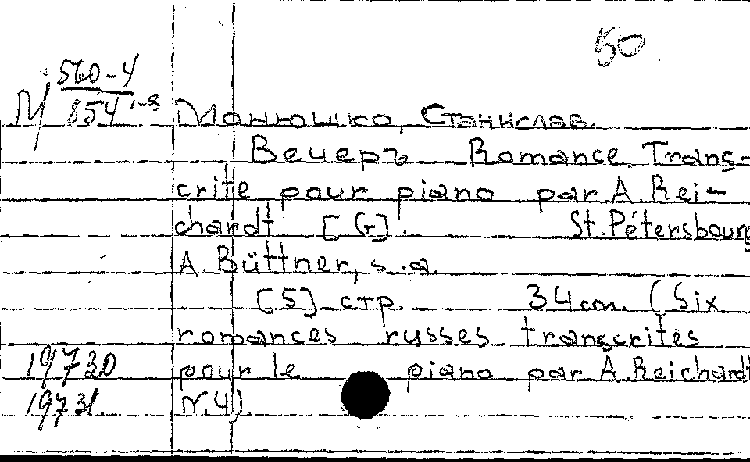 50
М 560-4
854 1-я
Монюшко, Станислав.
Вечеръ Romance. Trans-
crite pour piano par A. Rei-
chardt [G]. St. Pétersbourg
A. Büttner, s.a.
[5] стр. 34 cm. (Six
romances russes transcrites
19730 pour le piano par A. Reichardt
19731 N.4)